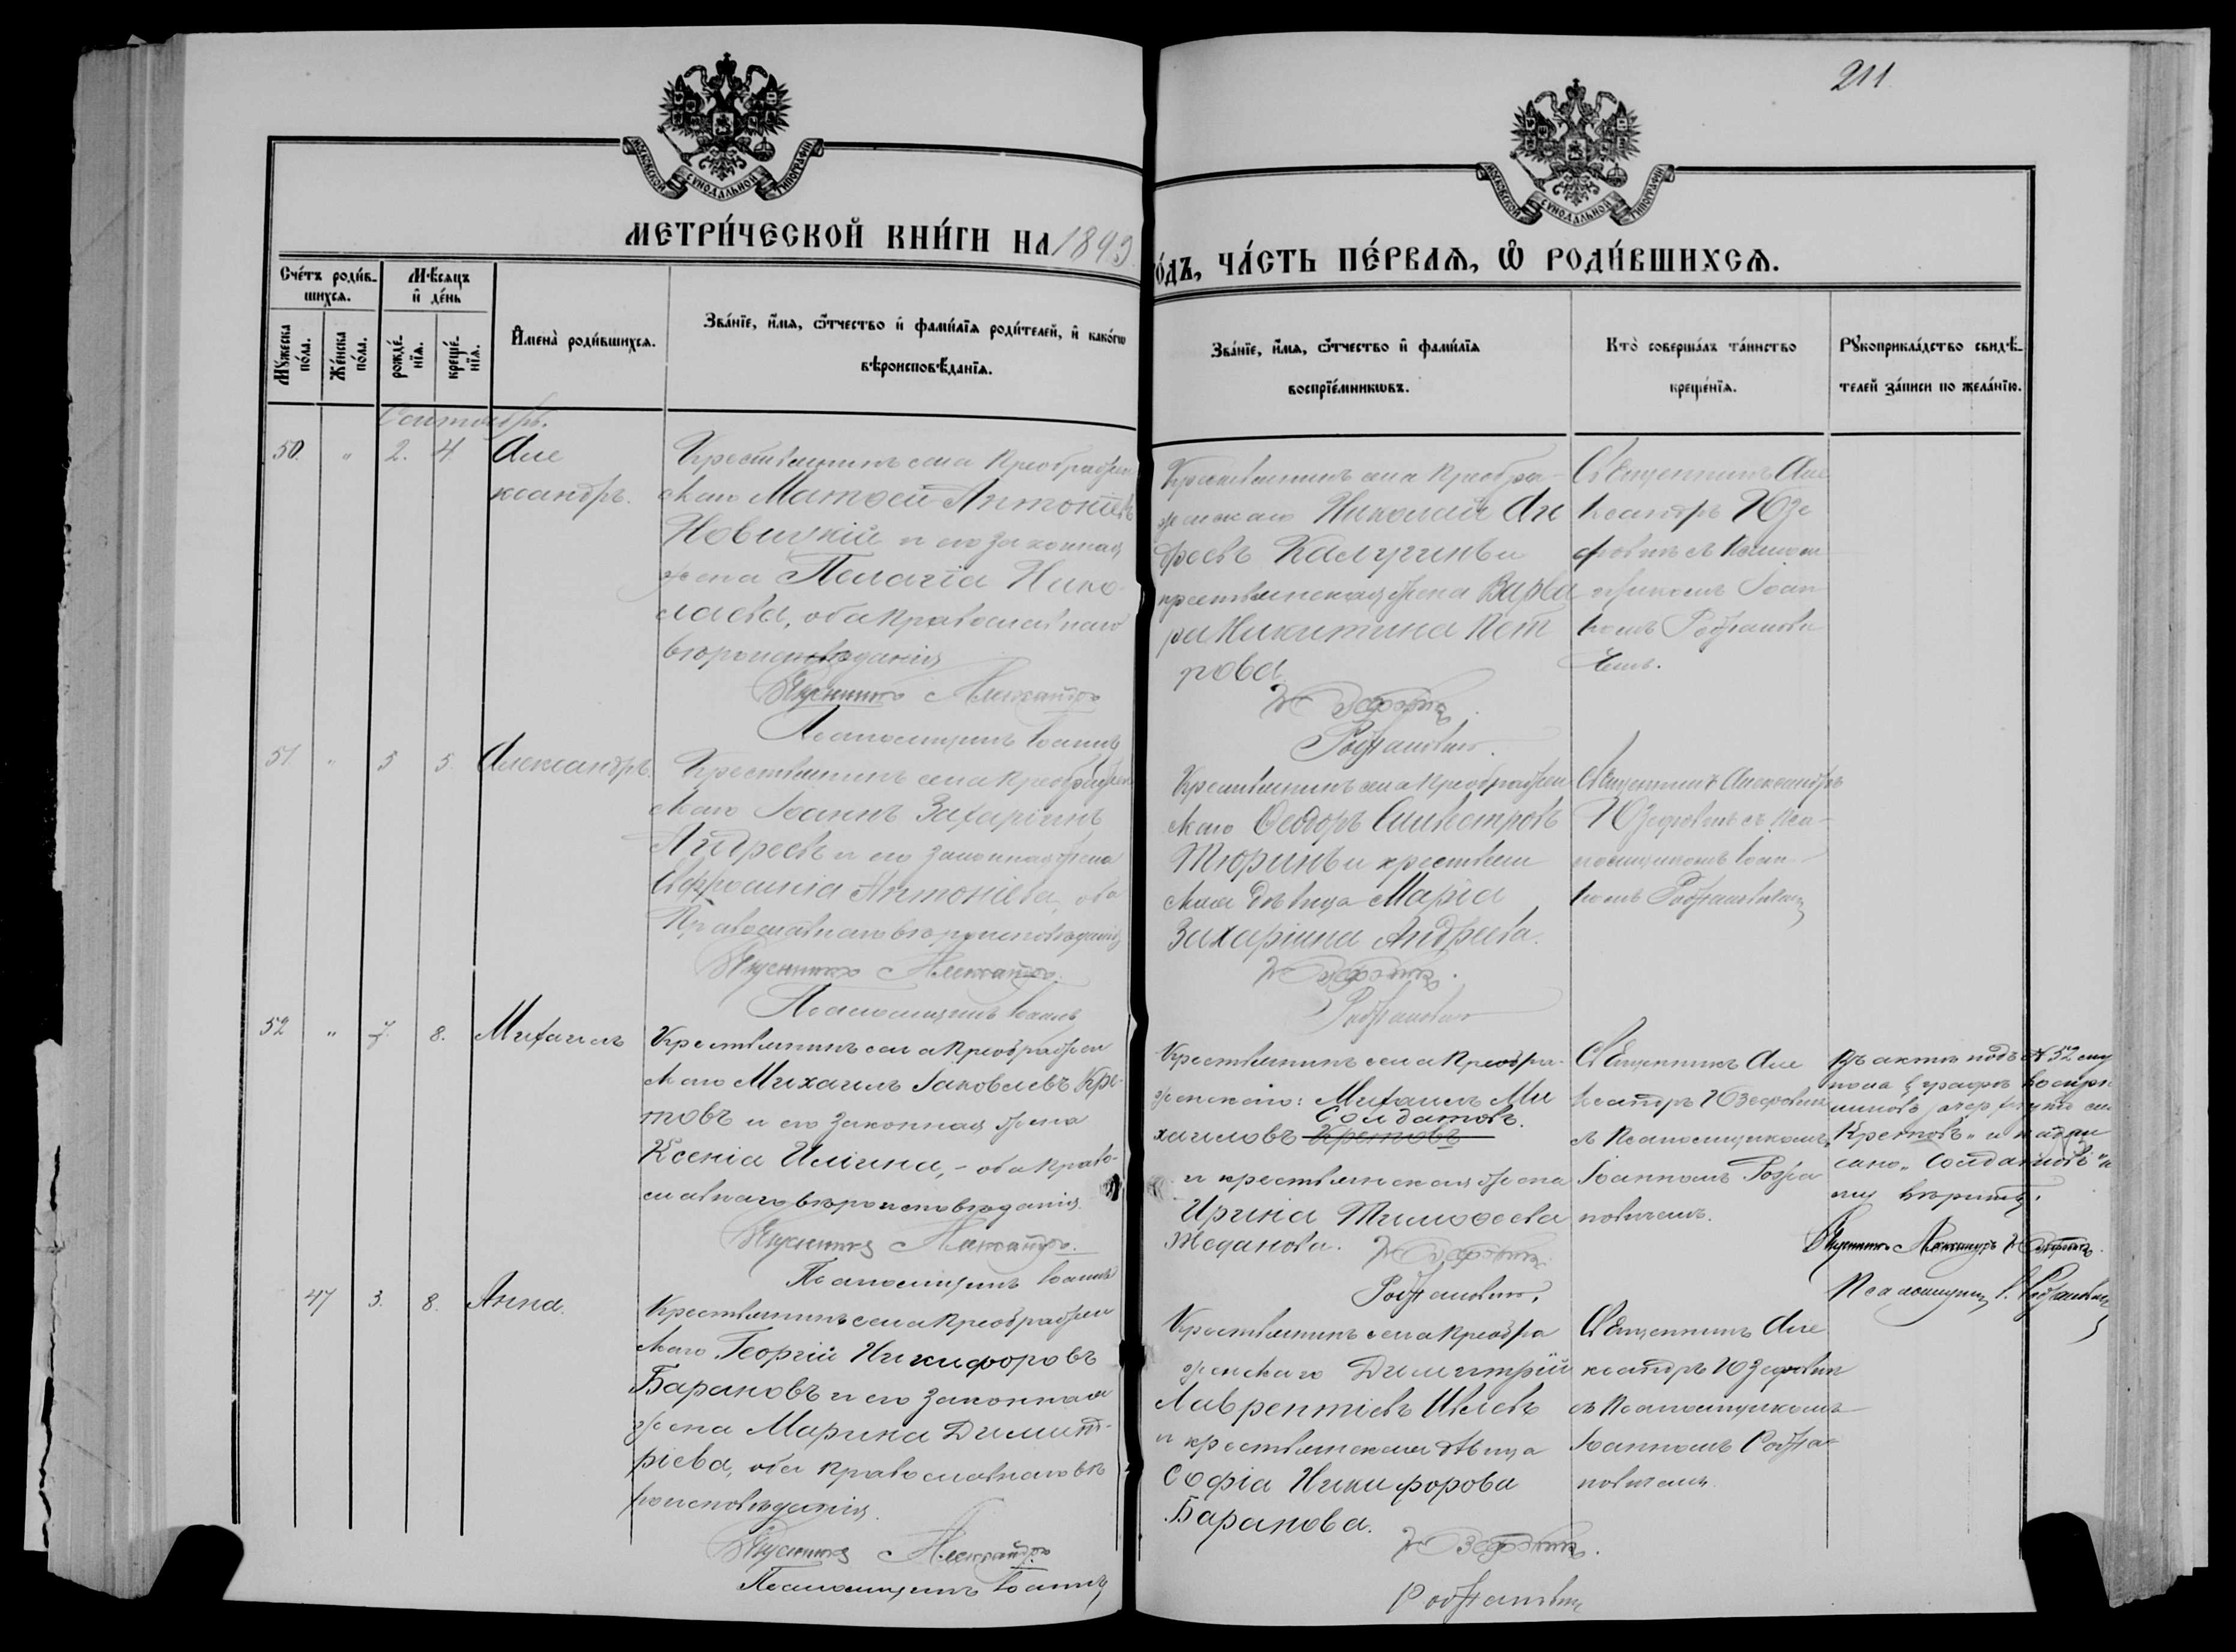 211
МОСКОВСКОЙ СѴНОДАЛЬНОЙ ТИПОГРАФІИ
МОСКОВСКОЙ СѴНОДАЛЬНОЙ ТИПОГРАФІИ
МЕТРИ́ЧЕСКОЙ КНИ́ГИ НА 1893
О́ДЪ, ЧА́СТЬ ПЕ́РВАѦ, Ѡ҆ РОДИ́ВШИХСѦ.
Сче́тъ роди́в-
шихсѧ.
Мꙋжеска по́ла.
Же́нска по́ла.
Мѣ́сѧцъ
и҆ де́нь
рожде́-
нїѧ.
креще́-
нїѧ.
И҆мена̀ роди́вшихсѧ.
Зва́нїе, и҆́мѧ, ѻ҆́тчество и҆ фами́лїѧ роди́телей, и҆ како́гѡ
вѣроисповѣ́данїѧ.
Зва́нїе, и҆́мѧ, ѻ҆́тчество и҆ фами́лїѧ
воспрїе́мникѡвъ.
Кто̀ соверша́лъ та́инство
креще́нїѧ.
Рꙋкоприкла́дство свидѣ́-
телей за́писи по жела́нїю.
Сентябрь.
50. " 2. 4. Але
ксандръ.
Крестьянинъ села Преображен
скаго Матѳей Антоніевъ
Новицкій и его законная
жена Пелагіа Нико-
лаева, оба православнаго
вѣроисповѣданія
Священникъ Александръ
Псаломщикъ Іоаннъ
Крестьянинъ села Преобра-
женскаго Николай Ан
дреевъ Калугинъ и
крестьянская жена Варва
ра Никитина Пет
рова
Юзефовичъ.
Рафановичъ.
Священникъ Але
ксандръ Юзе
фовичъ съ Псалом
щикомъ Іоан
номъ
51. " 3 5. Александръ.
Крестьянинъ села Преображен
скаго Іоаннъ Захаріинъ
Андреевъ и его законная жена
Евфросинія Антоніева, оба
Православнаго вѣроисповѣданія
Священникъ Александръ.
Псаломщикъ Іоаннъ
Крестьянинъ села Преображен
скаго Ѳеодоръ Сильвестровъ
Тюринъ и крестьян
ская дѣвица Марія
Захаріина Андреева.
Юзефовичъ.
Священникъ Александръ
Юзефовичъ съ Пса-
ломщикомъ Іоан-
номъ
52 " 7. 8. Михаилъ
Крестьянинъ села Преображен
скаго Михаилъ Іаковлевъ Кре-
товъ и его законная жена
Ксенія Иліина, - оба право-
славнаго вѣроисповѣданія.
Священникъ Александръ.
Псаломщикъ Іоаннъ
Крестьянинъ села Преобра-
женскаго: Михаилъ Ми
Солдатовъ.
хаиловъ Кретовъ
и крестьянская жена
Ирина Тимоѳеева
Жданова. Юзефовичъ.
Священникъ Але
ксандръ Юзефовичъ
съ Псаломщикомъ
Іоанномъ
новичемъ.
Въ актѣ подъ № 52
Кретовъ" и напи
сано „Солдатовъ"
му вѣрить.
Священникъ Александръ Юзефовичъ.
Псаломщикъ І.
47 3. 8. Анна.
Крестьянинъ села Преображен
скаго Георгій Никифоровъ
Барановъ и его законная
жена Марина Димит-
ріева, оба православнаго вѣ
роисповѣданія.
Священникъ Александръ
Псаломщикъ Іоаннъ
Крестьянинъ села Преобра
женскаго Димитрій
Лаврентіевъ Ивлевъ
и крестьянская дѣвица
Софіа Никифорова
Баранова.
Юзефовичъ.
Священникъ Але
ксандръ Юзефовичъ
съ Псаломщикомъ
Іоанномъ
новичемъ.